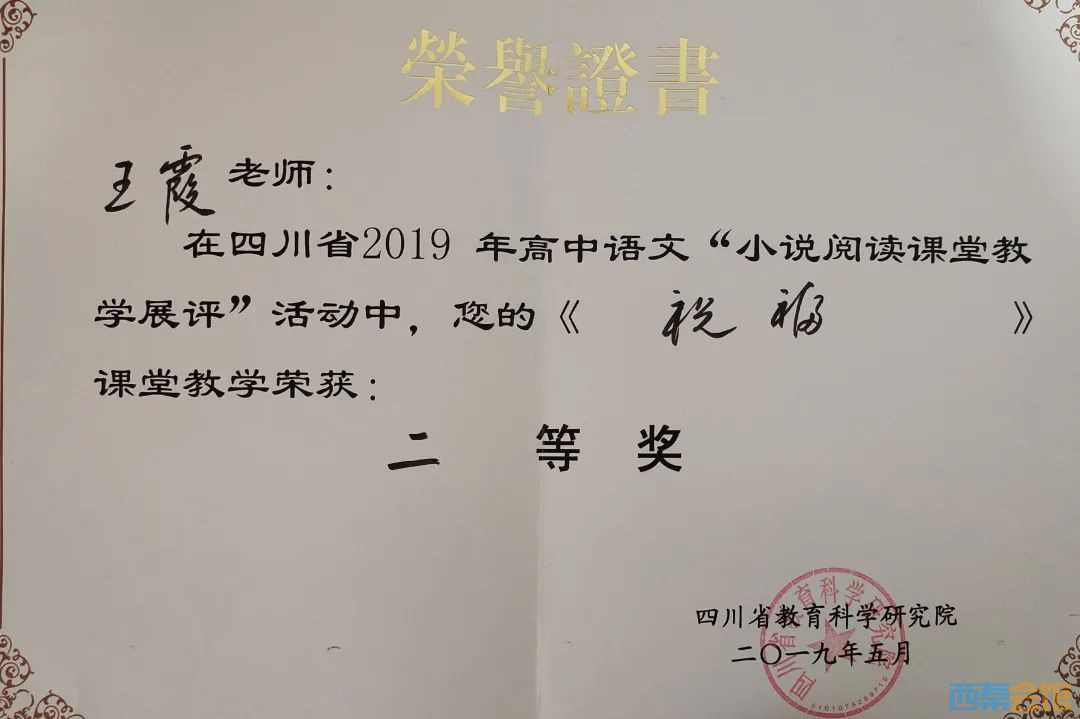 榮譽證書
王霞老师：
在四川省2019 年高中语文“小说阅读课堂教
学展评”活动中，您的《 祝福 》
课堂教学荣获：
二 等 奖
四川省教育科学研究院
二〇一九年五月
四川省教育科学研究院
西秦会馆